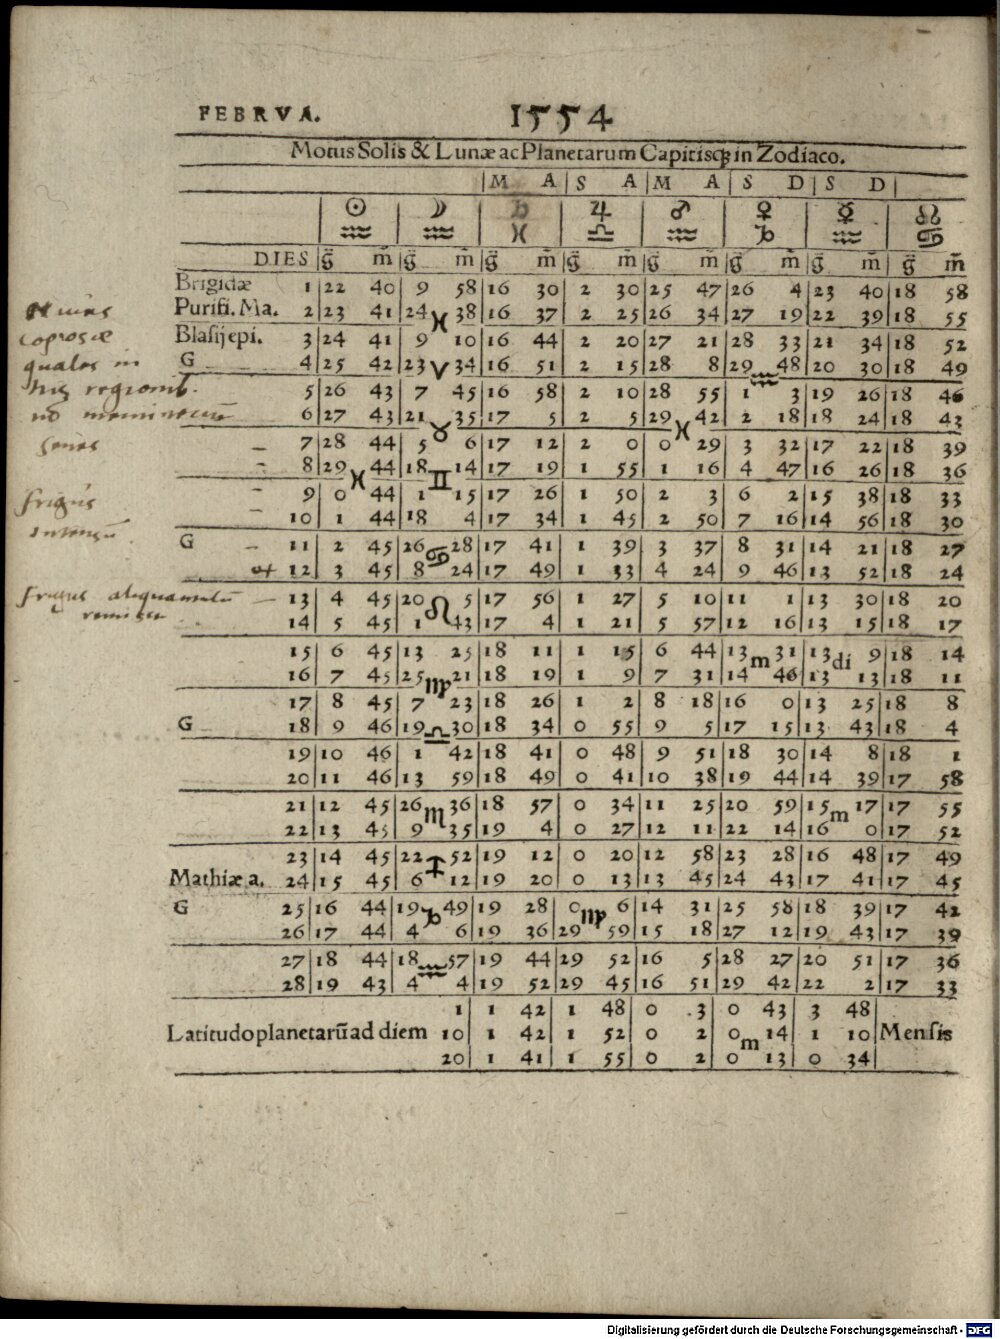 FEBRVA. 1554
Motus Solis & Lunæ ac Planetarum Capitisq; in Zodiaco.
M A S A M A S D S D
☉ ☽ ♄ ♃ ♂ ♀ ☿ ☊
♒ ♒ ♓ ♎ ♒ ♑ ♒ ♋
DIES g̃ m̃ g̃ m̃ g̃ m̃ g̃ m̃ g̃ m̃ g̃ m̃ g̃ m̃ g̃ m̃
Brigidæ 1 22 40 9 58 16 30 2 30 25 47 26 4 23 40 18 58
Purifi. Ma. 2 23 41 24 ♓ 38 16 37 2 25 26 34 27 19 22 39 18 55
Blasij epi. 3 24 41 9 10 16 44 2 20 27 21 28 33 21 34 18 52
G 4 25 42 23 ♈ 34 16 51 2 15 28 8 29 ♒ 48 20 30 18 49
5 26 43 7 45 16 58 2 10 28 55 1 3 19 26 18 46
6 27 43 21 ♉ 35 17 5 2 5 29 ♓ 42 2 18 18 24 18 43
7 28 44 5 6 17 12 2 0 0 29 3 32 17 22 18 39
8 29 ♓ 44 18 ♊ 14 17 19 1 55 1 16 4 47 16 26 18 36
9 0 44 1 15 17 26 1 50 2 3 6 2 15 38 18 33
10 1 44 18 4 17 34 1 45 2 50 7 16 14 56 18 30
G 11 2 45 26 ♋ 28 17 41 1 39 3 37 8 31 14 21 18 27
12 3 45 8 24 17 49 1 33 4 24 9 46 13 52 18 24
13 4 45 20 ♌ 5 17 56 1 27 5 10 11 1 13 30 18 20
14 5 45 1 43 17 4 1 21 5 57 12 16 13 15 18 17
15 6 45 13 25 18 11 1 15 6 44 13 m 31 13 di 9 18 14
16 7 45 25 ♍ 21 18 19 1 9 7 31 14 46 13 13 18 11
17 8 45 7 23 18 26 1 2 8 18 16 0 13 25 18 8
G 18 9 46 19 ♎ 30 18 34 0 55 9 5 17 15 13 43 18 4
19 10 46 1 42 18 41 0 48 9 51 18 30 14 8 18 1
20 11 46 13 59 18 49 0 41 10 38 19 44 14 39 17 58
21 12 45 26 ♏ 36 18 57 0 34 11 25 20 59 15 m 17 17 55
22 13 45 9 35 19 4 0 27 12 11 22 14 16 0 17 52
23 14 45 22 ♐ 52 19 12 0 20 12 58 23 28 16 48 17 49
Mathiæ a. 24 15 45 6 12 19 20 0 13 13 45 24 43 17 41 17 45
G 25 16 44 19 ♑ 49 19 28 0 ♍ 6 14 31 25 58 18 39 17 42
26 17 44 4 6 19 36 29 59 15 18 27 12 19 43 17 39
27 18 44 18 ♒ 57 19 44 29 52 16 5 28 27 20 51 17 36
28 19 43 4 4 19 52 29 45 16 51 29 42 22 2 17 33
1 1 42 1 48 0 3 0 43 3 48
Latitudo planetarū ad diem 10 1 42 1 52 0 2 0 m 14 1 10 Mensis
20 1 41 1 55 0 2 0 13 0 34
Niues
copiosæ
quales in
his regionib.
frigus
intensū
frigus aliquantulū
Digitalisierung gefördert durch die Deutsche Forschungsgemeinschaft - DFG